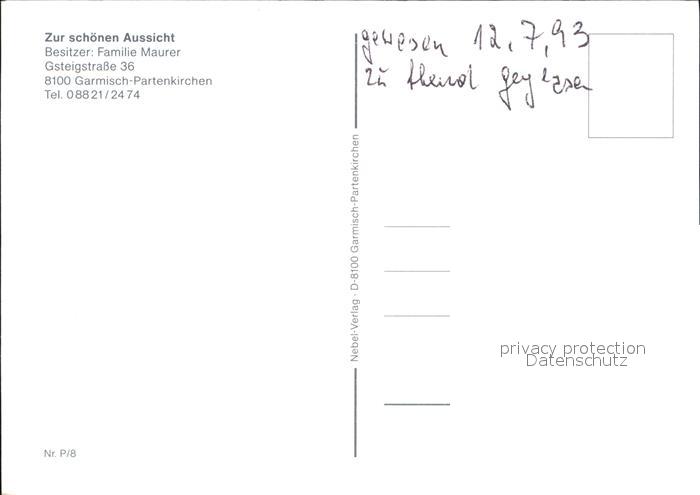 Zur schönen Aussicht
Besitzer: Familie Maurer
Gsteigstraße 36
8100 Garmisch-Partenkirchen
Tel. 08821/2474
gewesen 12.7.93
zu Abend gegessen
Nebel-Verlag · D-8100 Garmisch-Partenkirchen
privacy protection
Datenschutz
Nr. P/8